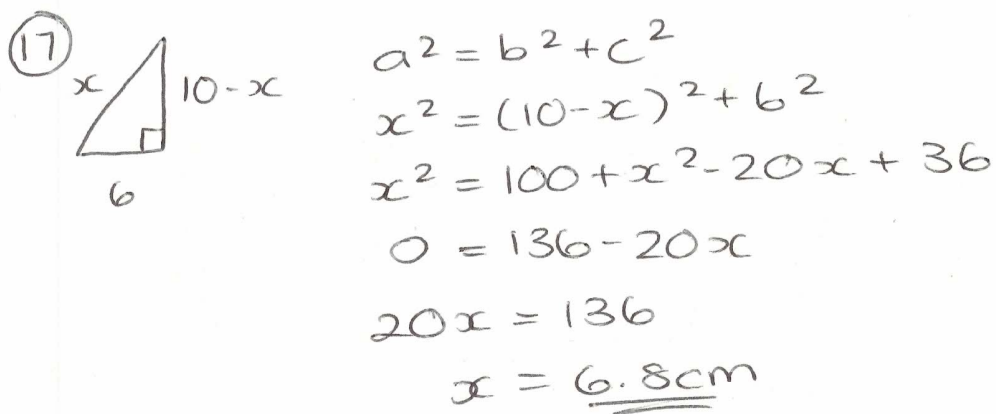 17
x
10-x
6
a² = b² + c²
x² = (10-x)² + 6²
x² = 100 + x² - 20x + 36
0 = 136 - 20x
20x = 136
x = 6.8cm